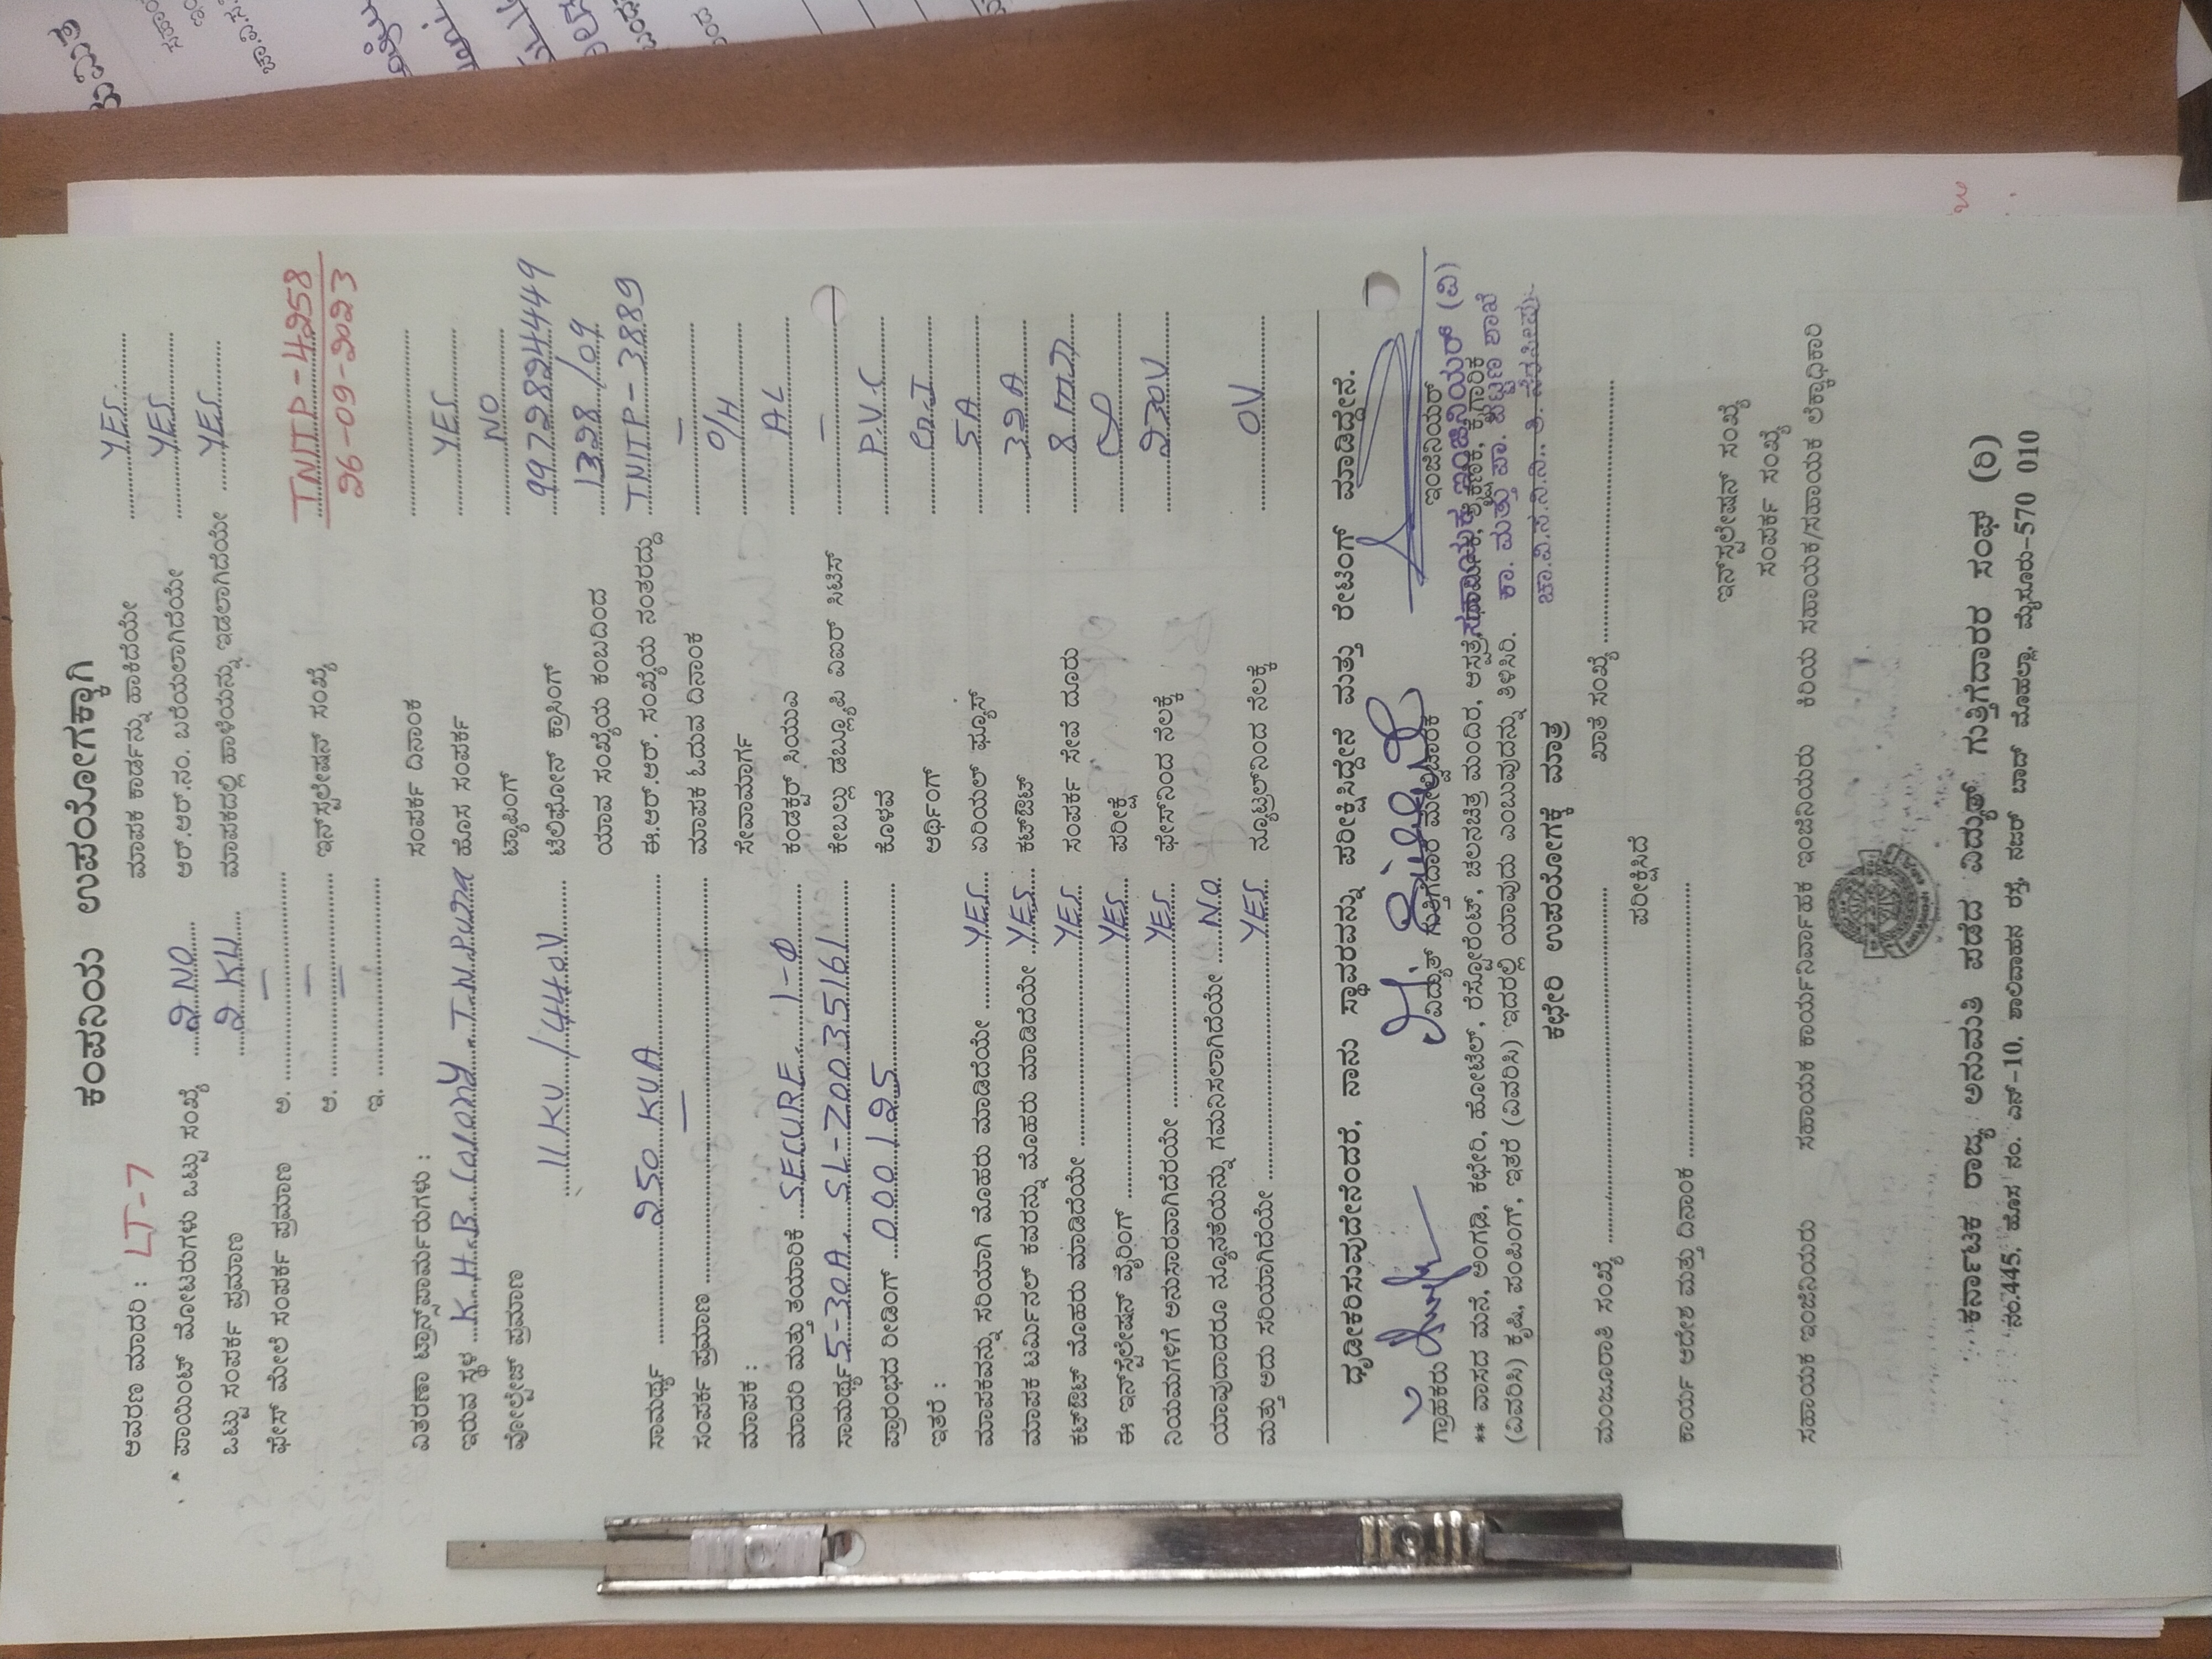 ಕಂಪನಿಯ ಉಪಯೋಗಕ್ಕಾಗಿ
ಆವರಣ ಮಾದರಿ : LT-7 ಮಾಪಕ ಕಾರ್ಡನ್ನು ಹಾಕಿದೆಯೇ YES
ಪಾಯಿಂಟ್ ಮೋಟರುಗಳು ಒಟ್ಟು ಸಂಖ್ಯೆ 2 NO ಆರ್.ಆರ್.ನಂ. ಬರೆಯಲಾಗಿದೆಯೇ YES
ಒಟ್ಟು ಸಂಪರ್ಕ ಪ್ರಮಾಣ 2 KW ಮಾಪಕದಲ್ಲಿ ಹಾಳೆಯನ್ನು ಇಡಲಾಗಿದೆಯೇ YES
ಫೇಸ್ ಮೇಲೆ ಸಂಪರ್ಕ ಪ್ರಮಾಣ ಅ. —
ಆ. — ಇನ್‌ಸ್ಟಲೇಷನ್ ಸಂಖ್ಯೆ TNITP-4258
ಇ. — 26-09-2023
ವಿತರಣಾ ಟ್ರಾನ್ಸ್‌ಫಾರ್ಮರುಗಳು : ಸಂಪರ್ಕ ದಿನಾಂಕ
ಇರುವ ಸ್ಥಳ K.H.B colony T.N.Pura ಹೊಸ ಸಂಪರ್ಕ YES
ವೋಲ್ಟೇಜ್ ಪ್ರಮಾಣ ಟ್ಯಾಪಿಂಗ್ NO
11 KV / 440V ಟೆಲಿಫೋನ್ ಕ್ರಾಸಿಂಗ್ 9972824449
ಯಾವ ಸಂಖ್ಯೆಯ ಕಂಬದಿಂದ 1328/09
ಸಾಮರ್ಥ್ಯ 250 KVA ಈ.ಆರ್.ಆರ್. ಸಂಖ್ಯೆಯ ನಂತರದ್ದು TNITP-3889
ಸಂಪರ್ಕ ಪ್ರಮಾಣ — ಮಾಪಕ ಓದುವ ದಿನಾಂಕ —
ಮಾಪಕ : ಸೇವಾಮಾರ್ಗ O/H
ಮಾದರಿ ಮತ್ತು ತಯಾರಿಕೆ SECURE 1-Φ ಕಂಡಕ್ಟರ್ ಸಿಯುಎ AL
ಸಾಮರ್ಥ್ಯ 5-30A SL-20035161 ಕೇಬಲ್ಲು ಡಬ್ಲ್ಯೂಪಿ ವಿಐಆರ್ ಸಿಟಿಸ್ —
ಪ್ರಾರಂಭದ ರೀಡಿಂಗ್ 000125 ಕೊಳವೆ P.V.C
ಇತರೆ : ಅರ್ಥಿಂಗ್ G.I
ಮಾಪಕವನ್ನು ಸರಿಯಾಗಿ ಮೊಹರು ಮಾಡಿದೆಯೇ YES ಏರಿಯಲ್ ಫ್ಯೂಸ್ 5A
ಮಾಪಕ ಟರ್ಮಿನಲ್ ಕವರನ್ನು ಮೊಹರು ಮಾಡಿದೆಯೇ YES ಕಟ್ಔಟ್ 32A
ಕಟ್ಔಟ್ ಮೊಹರು ಮಾಡಿದೆಯೇ YES ಸಂಪರ್ಕ ಸೇವೆ ದೂರು
ಈ ಇನ್‌ಸ್ಟೆಲೇಷನ್ ವೈರಿಂಗ್ YES ಪರೀಕ್ಷೆ
ನಿಯಮಗಳಿಗೆ ಅನುಸಾರವಾಗಿದೆರಯೇ YES ಫೇಸ್‌ನಿಂದ ನೆಲಕ್ಕೆ 230V
ಯಾವುದಾದರೂ ನ್ಯೂನತೆಯನ್ನು ಗಮನಿಸಲಾಗಿದೆಯೇ NO
ಮತ್ತು ಅದು ಸರಿಯಾಗಿದೆಯೇ YES ನ್ಯೂಟ್ರಲ್‌ನಿಂದ ನೆಲಕ್ಕೆ 0V
ಧೃಡೀಕರಿಸುವುದೇನೆಂದರೆ, ನಾನು ಸ್ಥಾವರವನ್ನು ಪರೀಕ್ಷಿಸಿದ್ದೇನೆ ಮತ್ತು ರೇಟಿಂಗ್ ಮಾಡಿದ್ದೇನೆ.
ಗ್ರಾಹಕರು ವಿದ್ಯುತ್ ಗುತ್ತಿಗೆದಾರ ಮೇಲ್ವಿಚಾರಕ ಇಂಜಿನಿಯರ್
ಸಹಾಯಕ ಇಂಜಿನಿಯರ್ (ವಿ)
** ವಾಸದ ಮನೆ, ಅಂಗಡಿ, ಕಛೇರಿ, ಹೋಟೆಲ್, ರೆಸ್ಟೋರೆಂಟ್, ಚಲನಚಿತ್ರ ಮಂದಿರ, ಆಸ್ಪತ್ರೆ, ಕೈಗಾರಿಕ
(ವಿವರಿಸಿ) ಕೃಷಿ, ಪಂಪಿಂಗ್, ಇತರೆ (ವಿವರಿಸಿ) ಇದರಲ್ಲಿ ಯಾವುದು ಎಂಬುವುದನ್ನು ತಿಳಿಸಿರಿ.
ಕಾ. ಮತ್ತು ಪಾ. ಪಟ್ಟಣ ಶಾಖೆ
ಚಾ.ವಿ.ಸ.ನಿ.ನಿ., ತಿ. ನರಸೀಪುರ
ಕಛೇರಿ ಉಪಯೋಗಕ್ಕೆ ಮಾತ್ರ
ಮಂಜೂರಾತಿ ಸಂಖ್ಯೆ ಖಾತೆ ಸಂಖ್ಯೆ
ಪರೀಕ್ಷಿಸಿದೆ
ಕಾರ್ಯ ಆದೇಶ ಮತ್ತು ದಿನಾಂಕ
ಇನ್‌ಸ್ಟಲೇಷನ್ ಸಂಖ್ಯೆ
ಸಂಪರ್ಕ ಸಂಖ್ಯೆ
ಸಹಾಯಕ ಇಂಜಿನಿಯರು ಸಹಾಯಕ ಕಾರ್ಯನಿರ್ವಾಹಕ ಇಂಜಿನಿಯರು ಕಿರಿಯ ಸಹಾಯಕ/ಸಹಾಯಕ ಲೆಕ್ಕಾಧಿಕಾರಿ
ಕರ್ನಾಟಕ ರಾಜ್ಯ ಅನುಮತಿ ಪಡೆದ ವಿದ್ಯುತ್ ಗುತ್ತಿಗೆದಾರರ ಸಂಘ (ರಿ)
ನಂ.445, ಹೊಸ ನಂ. ಎನ್-10, ಶಾಲಿವಾಹನ ರಸ್ತೆ, ನಜರ್ ಬಾದ್ ಮೊಹಲ್ಲಾ, ಮೈಸೂರು-570 010